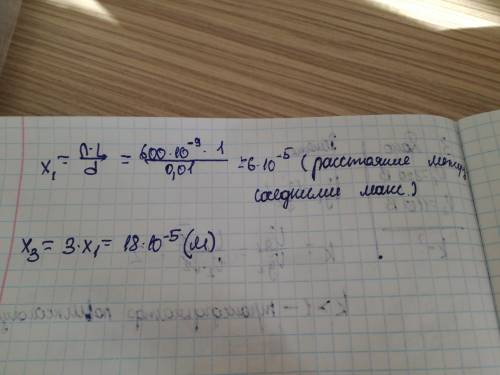 x₁ = λ·L/d = 600·10⁻⁹·1/0,01 = 6·10⁻⁵ (расстояние между
соедними макс.)
x₃ = 3·x₁ = 18·10⁻⁵ (м)